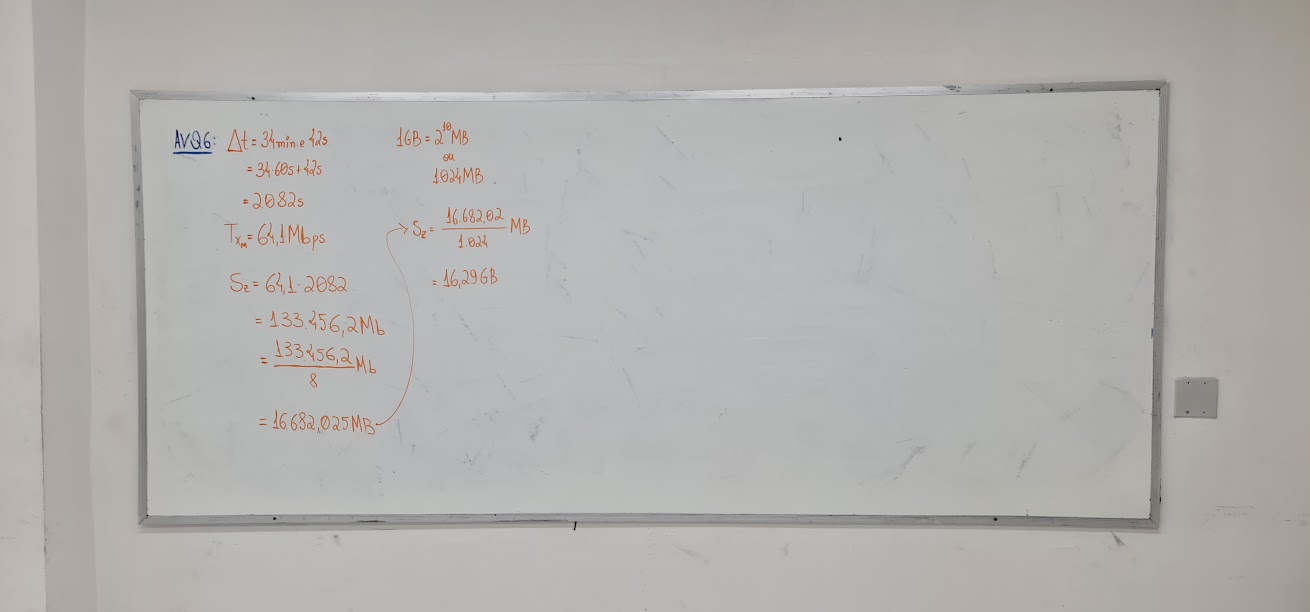 AVQ6: Δt = 34min e 42s
= 34·60s + 42s
= 2082s
Txₘ = 64,1Mbps
Sz = 64,1 · 2082
= 133.456,2Mb
= 133.456,2/8 Mb
= 16.682,025MB
1GB = 2¹⁰MB
ou
1.024MB
Sz = 16.682,02/1.024 MB
= 16,29GB